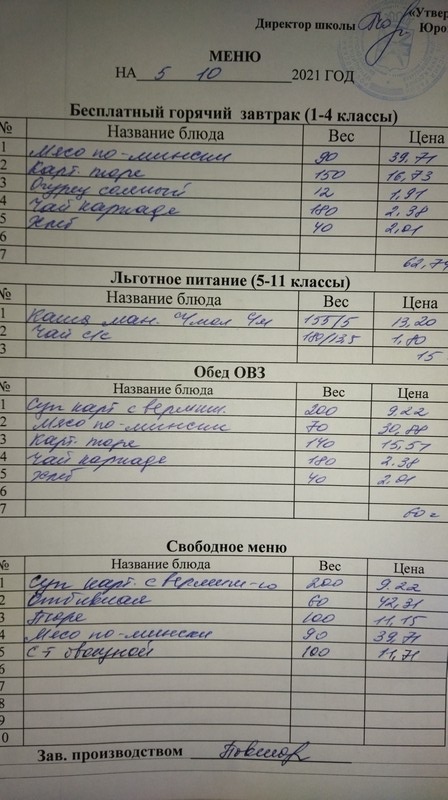 «Утвер
Директор школы Юро
МЕНЮ
НА 5 10 2021 ГОД
Бесплатный горячий завтрак (1-4 классы)
№ Название блюда Вес Цена
1 Мясо по-мински 90 39,71
2 Карт. пюре 150 16,73
3 Огурец соленый 12 1,91
4 Чай каркаде 180 2,38
5 Хлеб 40 2,01
6
7 62,74
Льготное питание (5-11 классы)
№ Название блюда Вес Цена
1 Каша ман. 155/5 13,20
2 Чай с/с 180/13,5 1,80
3 15
Обед ОВЗ
№ Название блюда Вес Цена
1 Суп карт с вермиш. 200 9.22
2 Мясо по-мински 70 30,88
3 Карт. пюре 140 15,57
4 Чай каркаде 180 2.38
5 Хлеб 40 2.01
6
7 60
Свободное меню
№ Название блюда Вес Цена
1 Суп карт. с вермиш-ю 200 9.22
2 Отбивная 60 42,31
3 Пюре 100 11,15
4 Мясо по-мински 90 39,71
5 С-т овощной 100 11,71
6
7
8
9
0
Зав. производством